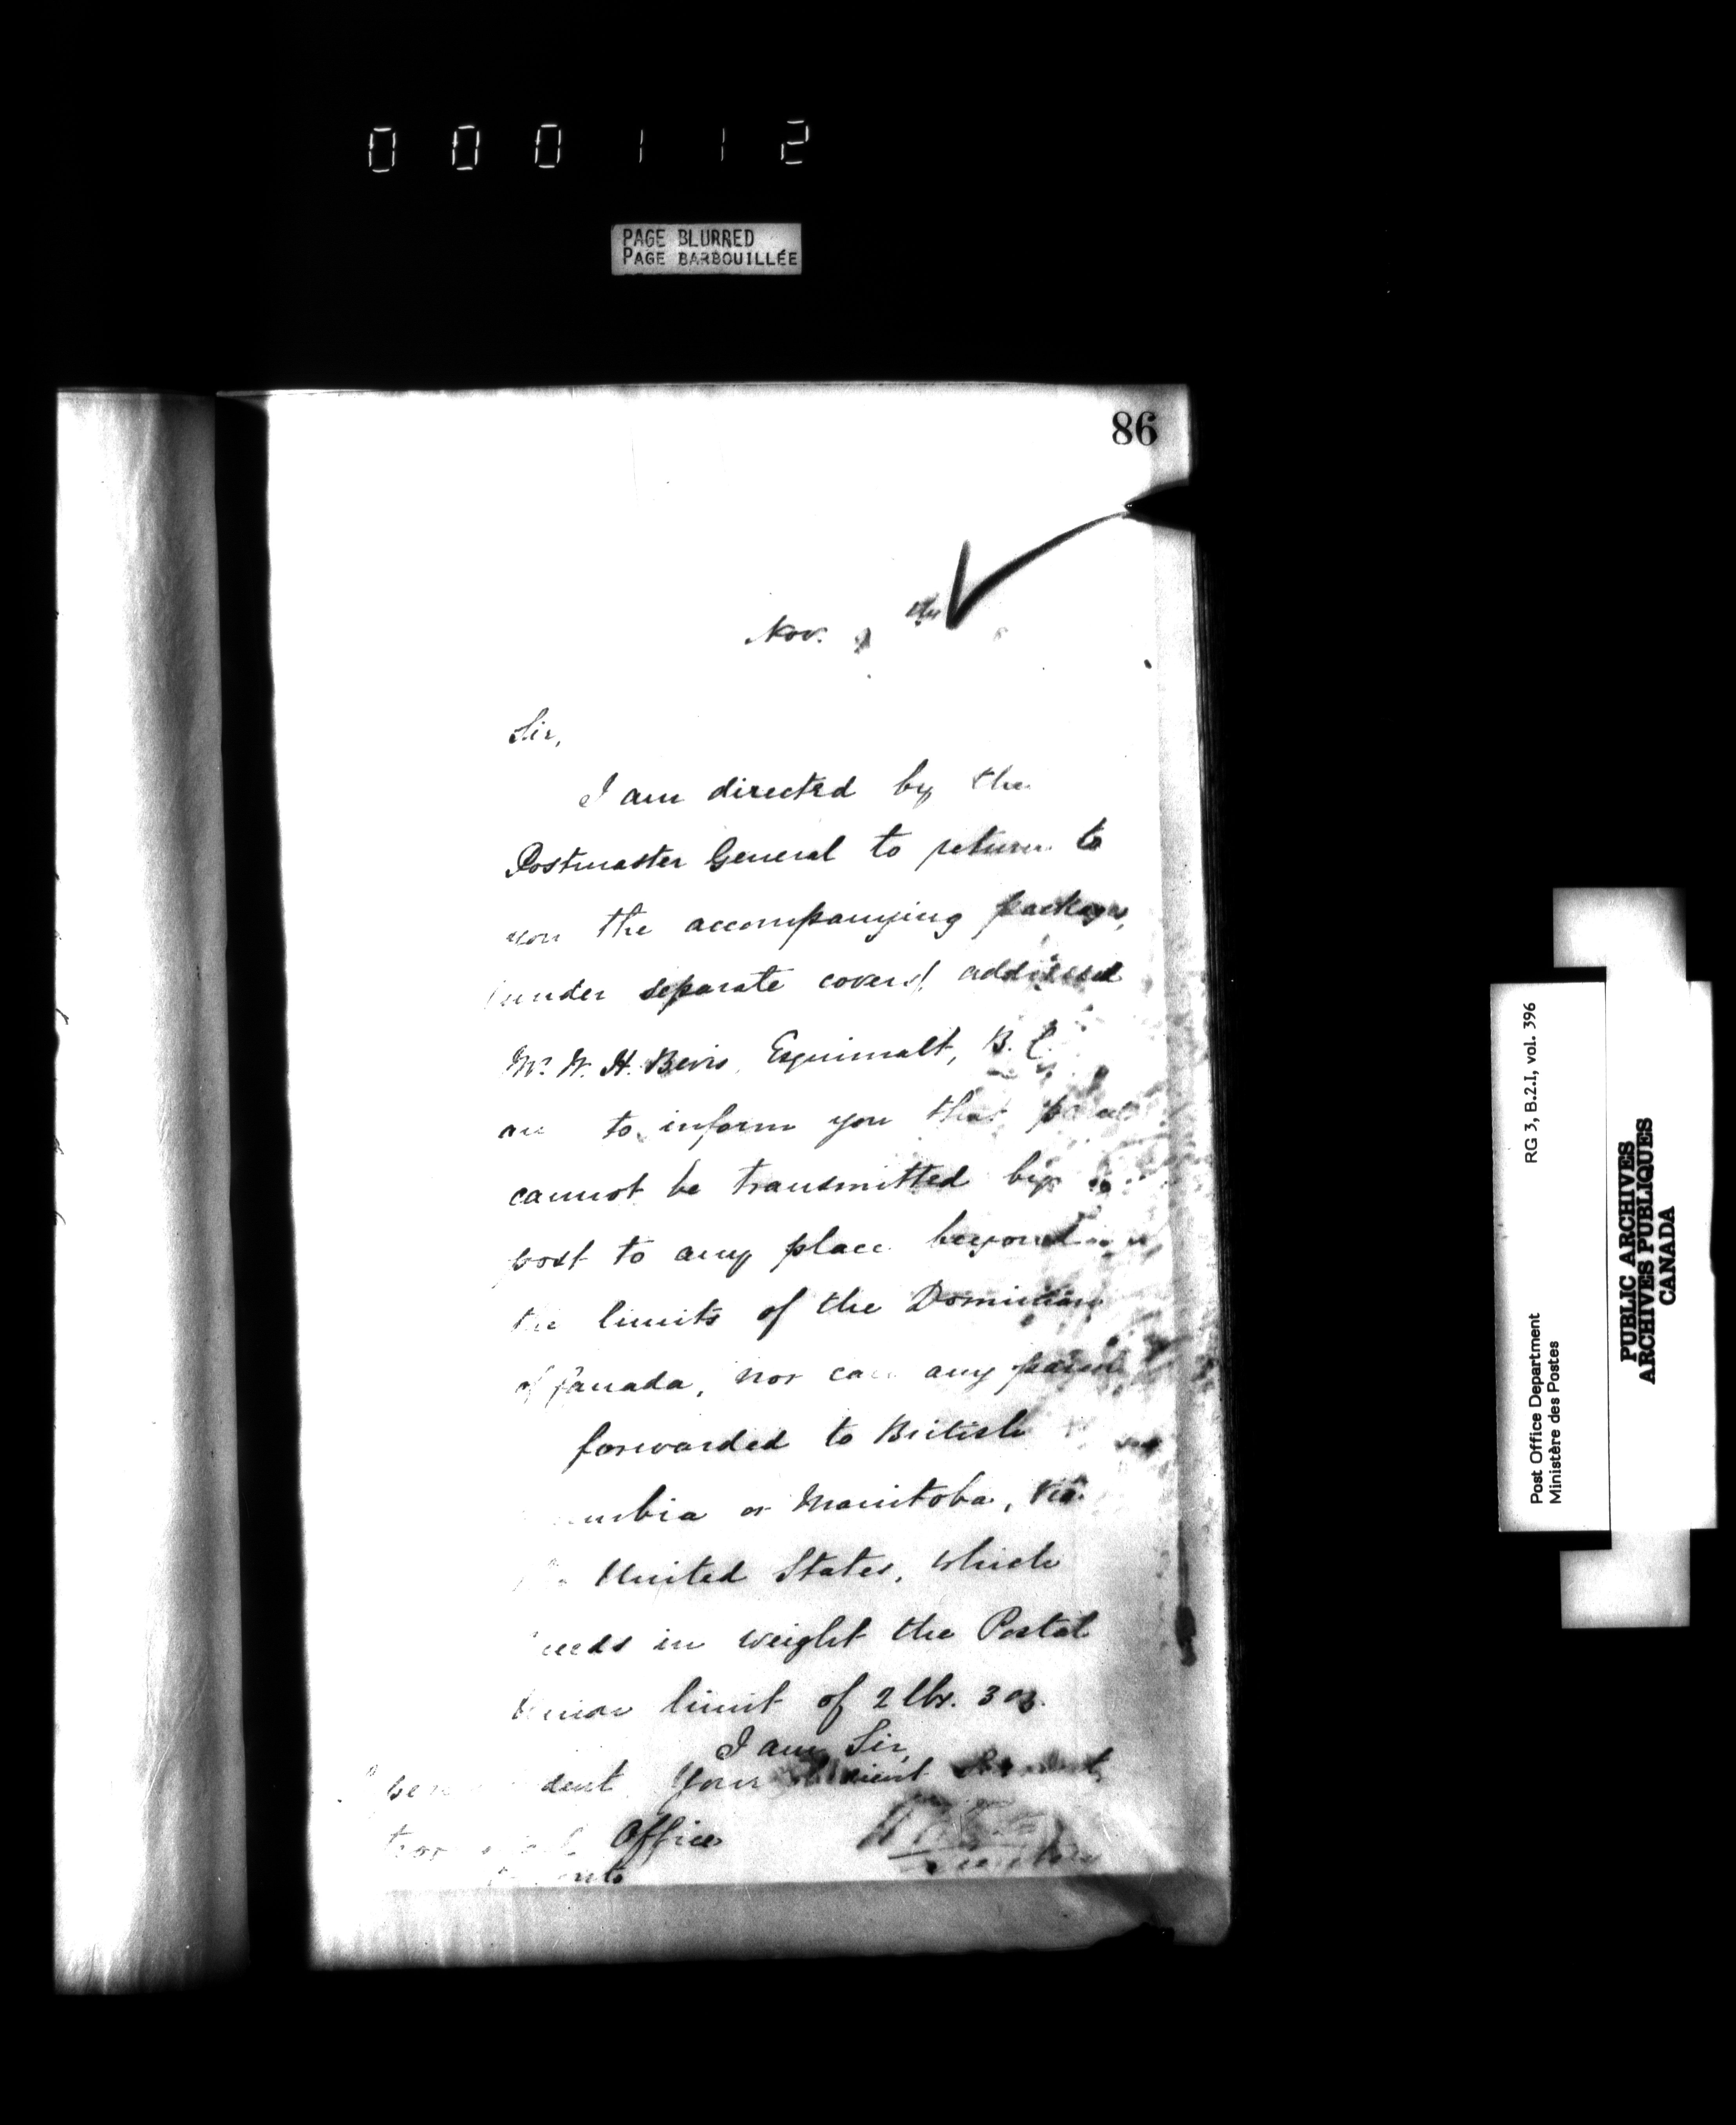 0 0 0 1 1 2
PAGE BLURRED
PAGE BARBOUILLÉE
86
Nov. th
Sir,
I am directed by the
Postmaster General to return to
you the accompanying package,
(under separate cover) addressed
Mr. W. H. Bevis, Esquimalt, B. C.
to inform you that
cannot be transmitted by
post to any place beyond
the limits of the Dominion
of Canada, nor can any parcel
forwarded to British
umbia or Manitoba, via
United States, which
eeds in weight the Postal
Union limit of 2 lbs. 3 oz.
I am, Sir,
dent Your obedient Servant,
Office
Secretary
Post Office Department RG 3, B.2.I, vol. 396
Ministère des Postes
PUBLIC ARCHIVES
ARCHIVES PUBLIQUES
CANADA